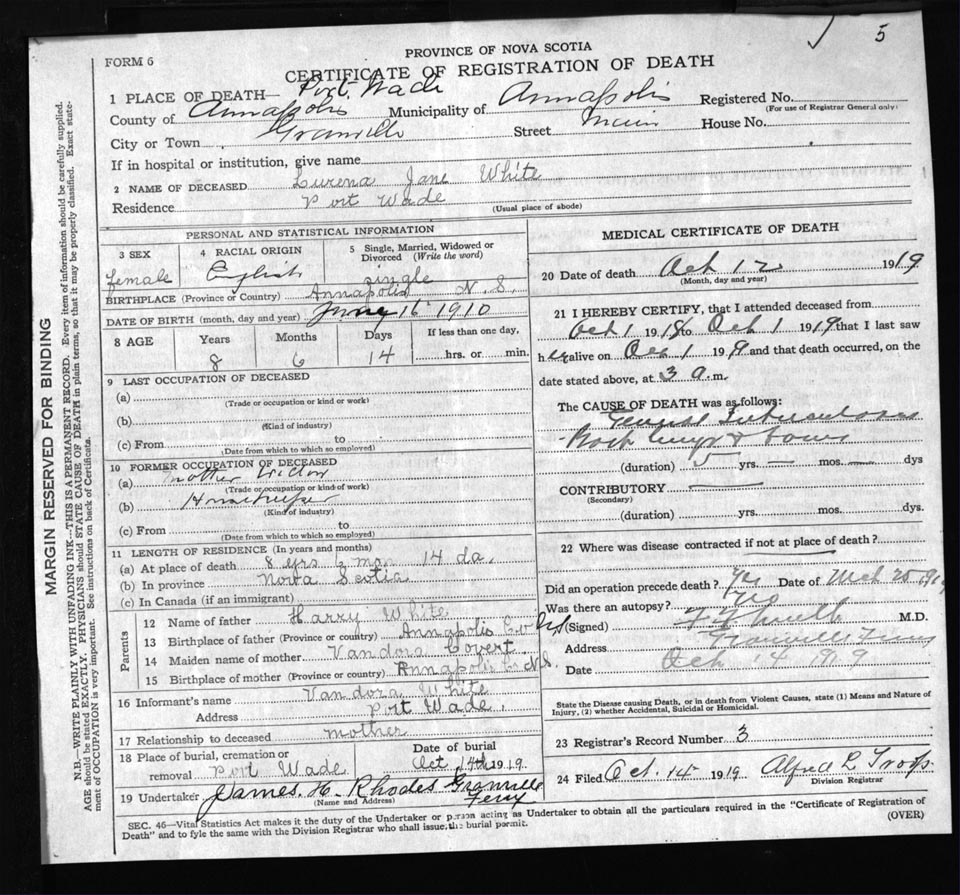 5
FORM 6
PROVINCE OF NOVA SCOTIA
CERTIFICATE OF REGISTRATION OF DEATH
1 PLACE OF DEATH— Port Wade
County of Annapolis Municipality of Annapolis Registered No.
(For use of Registrar General only)
City or Town Granville Street Main House No.
If in hospital or institution, give name
2 NAME OF DECEASED Lurena Jane White
Residence Port Wade
(Usual place of abode)
PERSONAL AND STATISTICAL INFORMATION
3 SEX 4 RACIAL ORIGIN 5 Single, Married, Widowed or Divorced (Write the word)
female English single
BIRTHPLACE (Province or Country) Annapolis N.S.
DATE OF BIRTH (month, day and year) 16 1910
8 AGE Years Months Days If less than one day,
8 6 14 hrs. or min.
9 LAST OCCUPATION OF DECEASED
(a)
(Trade or occupation or kind or work)
(b)
(Kind of industry)
(c) From to
(Date from which to which so employed)
10 FORMER OCCUPATION OF DECEASED
(a) Mother
(Trade or occupation or kind of work)
(b) Housekeeper
(Kind of industry)
(c) From to
(Date from which to which so employed)
11 LENGTH OF RESIDENCE (In years and months)
(a) At place of death 8 yrs mo. 14 da.
(b) In province Nova Scotia
(c) In Canada (if an immigrant)
Parents
12 Name of father Harry White
13 Birthplace of father (Province or country) Annapolis Co
14 Maiden name of mother Vandora Covert
15 Birthplace of mother (Province or country) Annapolis Co N.S.
16 Informant's name Vandora White
Address Port Wade.
17 Relationship to deceased mother
18 Place of burial, cremation or removal Port Wade Date of burial Oct 14th 1919.
19 Undertaker James. H. Rhodes Granville Ferry
(Name and Address)
MEDICAL CERTIFICATE OF DEATH
20 Date of death Oct 12 1919
(Month, day and year)
21 I HEREBY CERTIFY, that I attended deceased from
Oct 1 1918 to Oct 1 1919 that I last saw
her alive on Oct 1 1919 and that death occurred, on the
date stated above, at 3 a.m.
The CAUSE OF DEATH was as follows:
General Tuberculosis
lungs &
(duration) 5 yrs. — mos. — dys
CONTRIBUTORY
(Secondary)
(duration) yrs. mos. dys.
22 Where was disease contracted if not at place of death?
Did an operation precede death? Yes Date of Mch 25 191
Was there an autopsy? No
(Signed) M.D.
Address Granville Ferry
Date Oct 14 1919
State the Disease causing Death, or in death from Violent Causes, state (1) Means and Nature of
Injury, (2) whether Accidental, Suicidal or Homicidal.
23 Registrar's Record Number 3
24 Filed Oct. 14 1919 Alfred L
Division Registrar
SEC. 46—Vital Statistics Act makes it the duty of the Undertaker or person acting as Undertaker to obtain all the particulars required in the "Certificate of Registration of
Death" and to fyle the same with the Division Registrar who shall issue the burial permit.
(OVER)
MARGIN RESERVED FOR BINDING
N.B.—WRITE PLAINLY WITH UNFADING INK—THIS IS A PERMANENT RECORD. Every item of information should be carefully supplied.
AGE should be stated EXACTLY. PHYSICIANS should STATE CAUSE OF DEATH in plain terms, so that it may be properly classified. Exact state-
ment of OCCUPATION is very important. See instructions on back of Certificate.